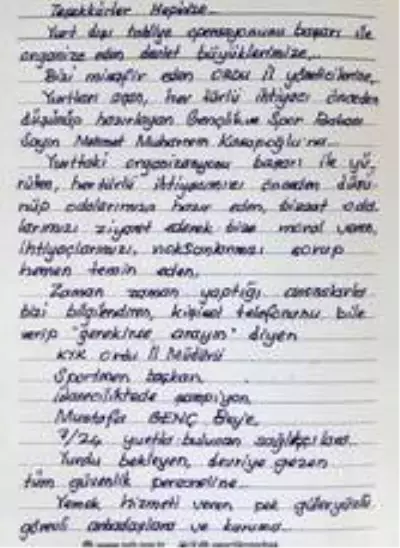 Teşekkürler Hepinize...
Yurt dışı tahliye operasyonunu başarı ile
organize eden devlet büyüklerimize,..
Bizi misafir eden ORDU İl yöneticilerine,
Yurtları açan, her türlü ihtiyacı önceden
düşünüp hazırlayan Gençlik ve Spor Bakanı
Sayın Mehmet Muharrem Kasapoğlu'na...
Yurttaki organizasyonu başarı ile yü,
rüten, her türlü ihtiyacımızı önceden düşü-
nüp odalarımızı hazır eden, bizzat oda
larımızı ziyaret ederek bize moral veren,
ihtiyaçlarımızı, noksanlarımızı sorup
hemen temin eden,
Zaman zaman yaptığı anonslarla
bizi bilgilendiren, kişisel telefonunu bile
verip "gerekirse arayın" diyen
KYK Ordu İl Müdürü
Sportmen başkan
idarecilikte de şampiyon
Mustafa GENÇ Bey'e,
7/24 yurtta bulunan sağlıkçılara...
Yurdu bekleyen, devriye gezen
tüm güvenlik personeline...
Yemek hizmeti veren pek güleryüzlü
görevli arkadaşlara ve kuruma...